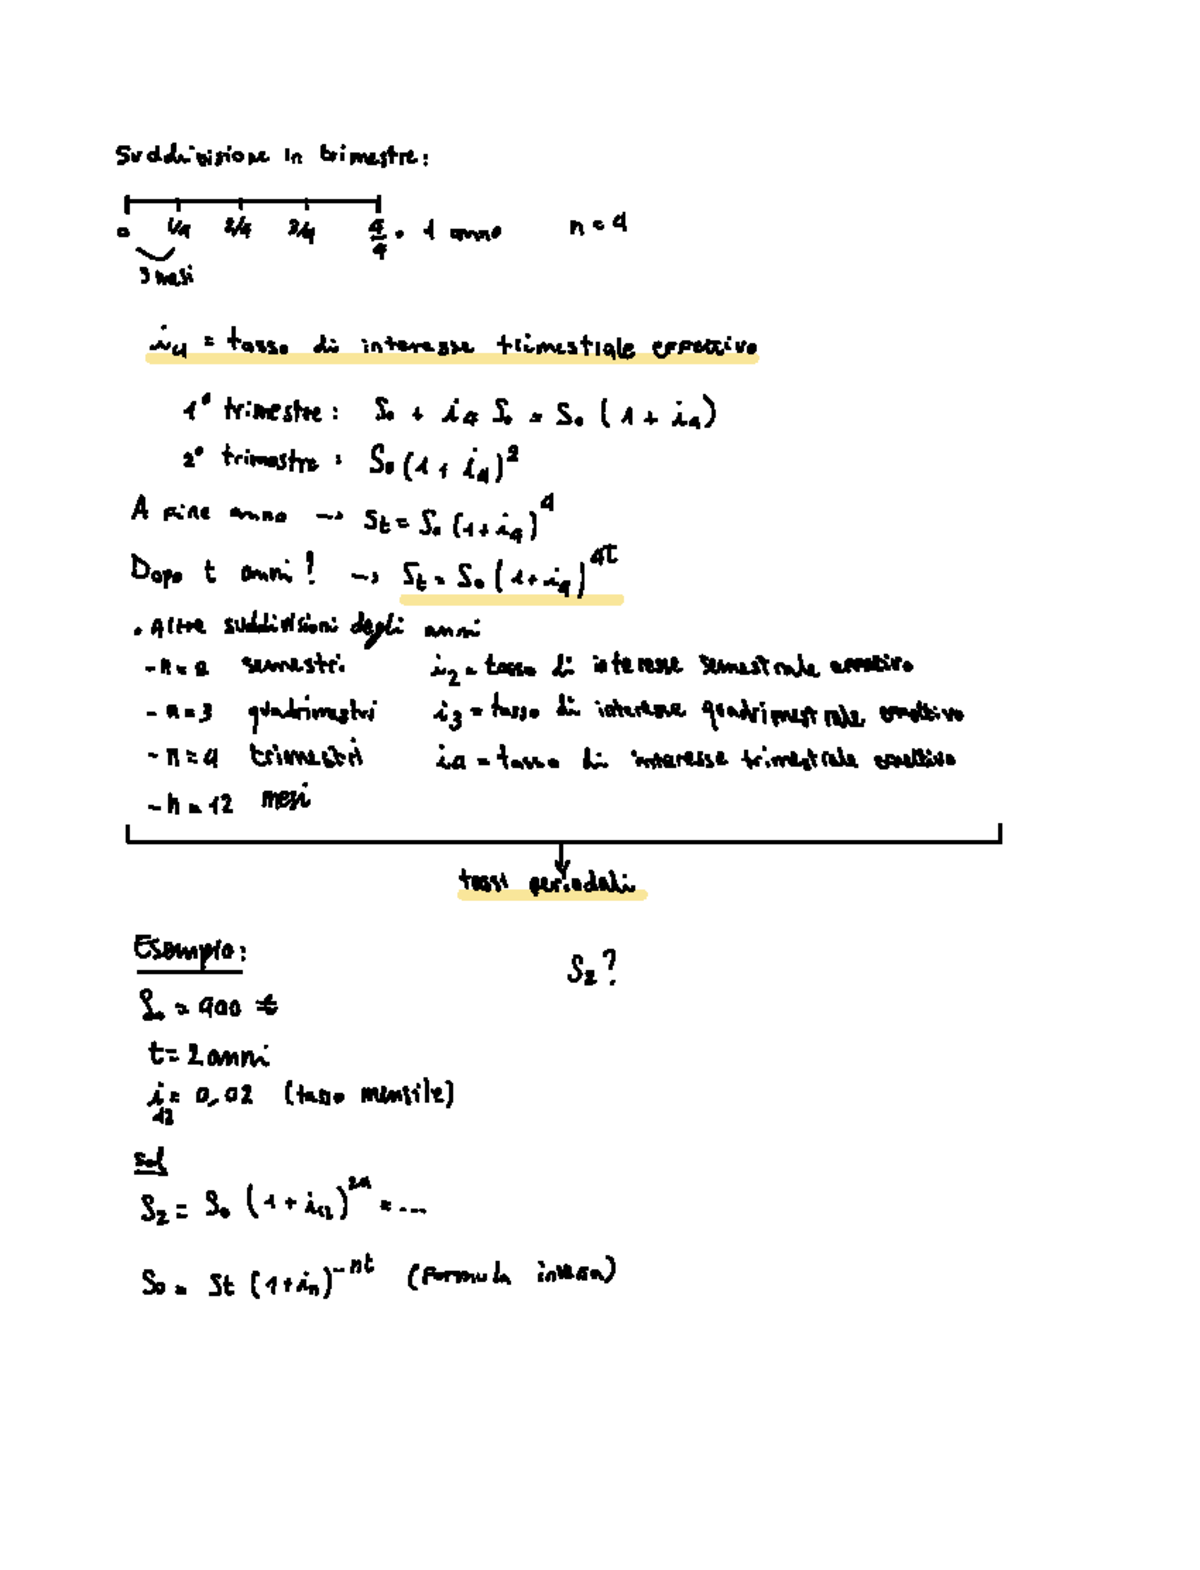 Suddivisione in trimestre:
0 1/4 2/4 3/4 4/4 = 1 anno n = 4
3 mesi
i4 = tasso di interesse trimestrale effettivo
1° trimestre: S0 + i4 S0 = S0 (1 + i4)
2° trimestre: S0 (1 + i4)^2
A fine anno → St = S0 (1 + i4)^4
Dopo t anni? → St = S0 (1 + i4)^4t
• Altre suddivisioni degli anni
- n = 2 semestri i2 = tasso di interesse semestrale effettivo
- n = 3 quadrimestri i3 = tasso di interesse quadrimestrale effettivo
- n = 4 trimestri i4 = tasso di interesse trimestrale effettivo
- n = 12 mesi
tassi periodali
Esempio: S2?
S0 = 900 €
t = 2 anni
i12 = 0,02 (tasso mensile)
sol
S2 = S0 (1 + i12)^24 = ...
S0 = St (1 + in)^-nt (formula inversa)